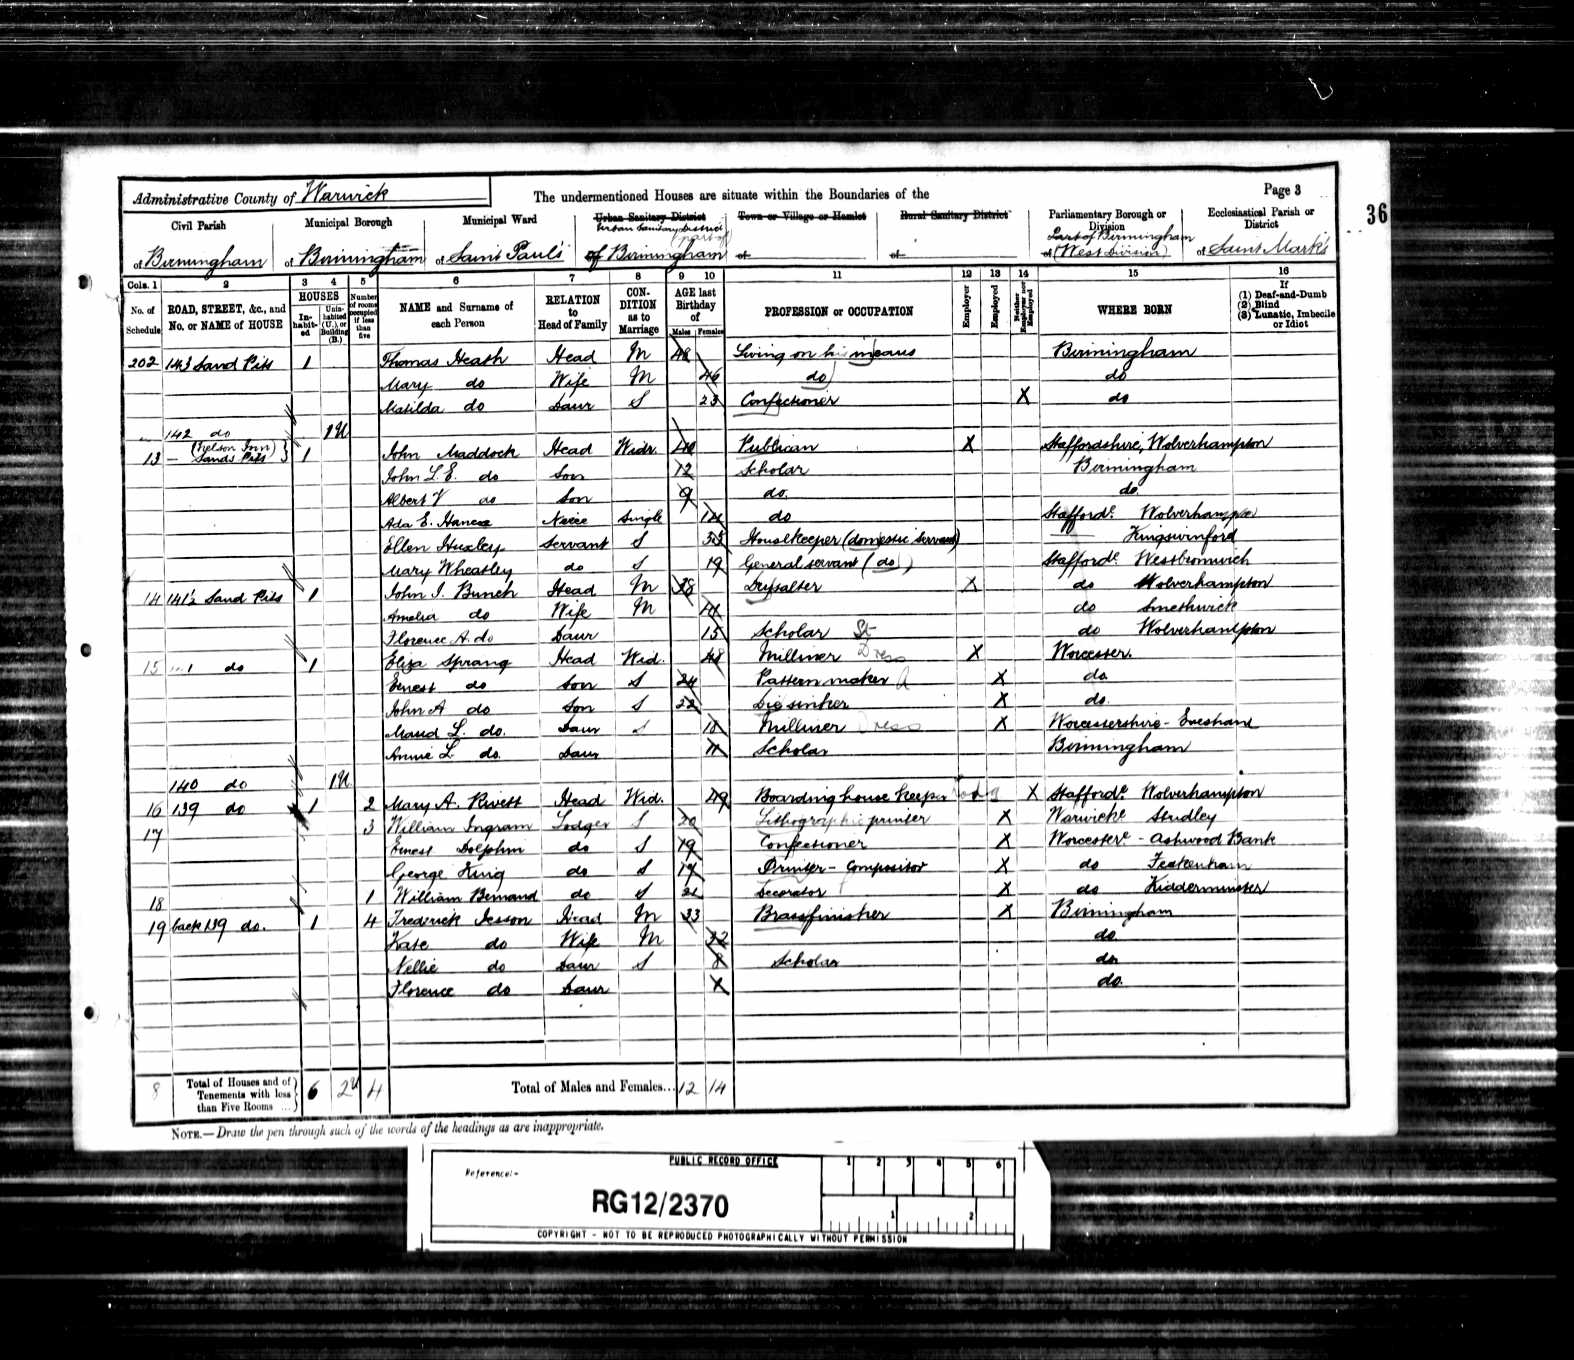 Administrative County of Warwick
The undermentioned Houses are situate within the Boundaries of the
Page 3
36
Civil Parish
Municipal Borough
Municipal Ward
Urban Sanitary District
Town or Village or Hamlet
Rural Sanitary District
Parliamentary Borough or Division
Ecclesiastical Parish or District
Urban Sanitary District
(part of)
Part of Birmingham
of Birmingham
of Birmingham
of Saint Paul's
of Birmingham
of
of
of (West Division)
of Saint Mark's
Cols. 1 2 3 4 5 6 7 8 9 10 11 12 13 14 15 16
No. of Schedule
ROAD, STREET, &c., and No. or NAME of HOUSE
HOUSES
In-habit-ed
Unin-habited (U.), or Building (B.)
Number of rooms occupied if less than five
NAME and Surname of each Person
RELATION to Head of Family
CON-DITION as to Marriage
AGE last Birthday of
Males Females
PROFESSION or OCCUPATION
Employer
Employed
Neither Employer nor Employed
WHERE BORN
If
(1) Deaf-and-Dumb
(2) Blind
(3) Lunatic, Imbecile or Idiot
202 143 Sand Pits 1 Thomas Heath Head M 48 Living on his means Birmingham
Mary do Wife M 46 do do
Matilda do Daur S 23 Confectioner X do
142 do 1U
13 (Nelson Inn) Sands Pits 1 John Maddock Head Widr. 40 Publican X Staffordshire, Wolverhampton
John L. E. do Son 12 Scholar Birmingham
Albert V do Son 9 do. do.
Ada E. Hancox Neice Single 14 do Staffords. Wolverhampton
Ellen Huxley Servant S Housekeeper (domestic servant) Kingswinford
Mary Wheatley do S 19 General servant (do) Staffords. Westbromwich
14 141½ Sand Pits 1 John I. Bunch Head M 38 Drysalter X do Wolverhampton
Amelia do Wife M 41 do Smethwick
Florence A. do Daur 15 Scholar St do Wolverhampton
15 141 do 1 Eliza Sprang Head Wid. 48 Milliner Dress X Worcester.
Ernest do Son S 24 Pattern maker X do
John A do Son S 22 Die sinker X do.
Maud L. do. Daur S 18 Milliner Dress X Worcestershire - Evesham
Annie L do. Daur 11 Scholar Birmingham
140 do 1U
16 139 do 1 2 Mary A. Rivett Head Wid. 49 Boarding house keeper X Staffords. Wolverhampton
17 3 William Ingram Lodger S 20 Lithographic printer X Warwicks. Studley
Ernest Dolphin do S 19 Confectioner X Worcesters. - Astwood Bank
George King do S 17 Printer - Compositor X do Feckenham
18 1 William Bernand do S 21 Decorator X do Kidderminster
19 back 139 do. 1 4 Frederick Jesson Head M 33 Brassfinisher X Birmingham
Kate do Wife M 32 do.
Nellie do Daur S 8 Scholar do
Florence do Daur do.
8 Total of Houses and of Tenements with less than Five Rooms ... 6 2U 4 Total of Males and Females... 12 14
NOTE.—Draw the pen through such of the words of the headings as are inappropriate.
PUBLIC RECORD OFFICE
1 2 3 4 5 6
Reference:-
RG12/2370
1 2
COPYRIGHT - NOT TO BE REPRODUCED PHOTOGRAPHICALLY WITHOUT PERMISSION